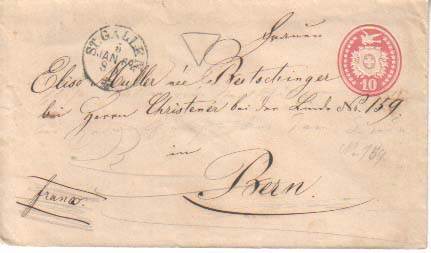 ST. GALLEN
6
JAN 68
10
Elise Muller née Bertschinger
bei Herrn Christener bei der Linde No. 159
im
No. 159
Bern.
franco.